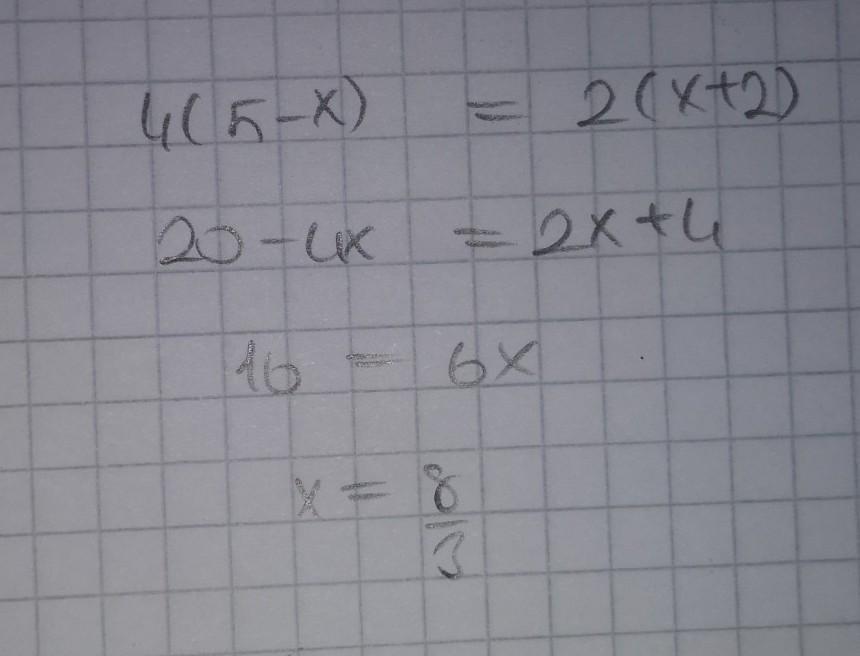 4(5-x) = 2(x+2)
20-4x = 2x+4
16 = 6x
x = 8/3